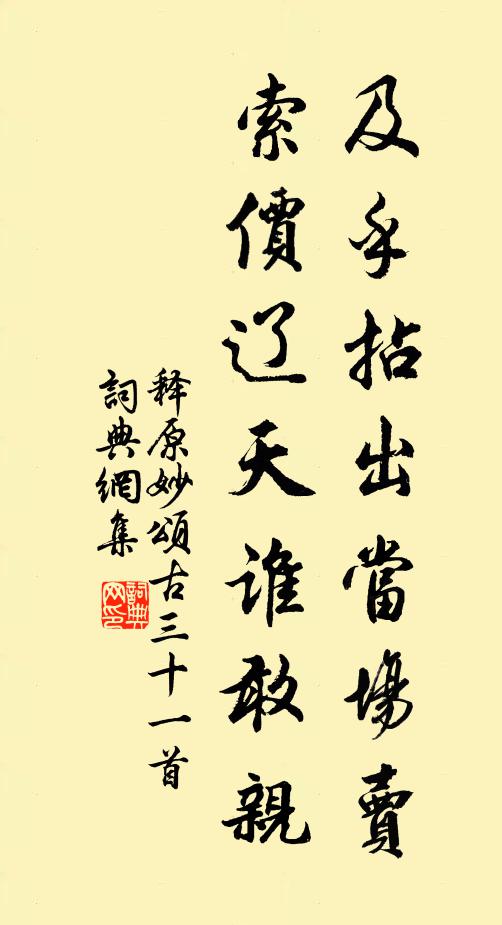 及乎拈出當場賣
索價辽天誰敢親
释原妙頌古三十一首
詞典網集
詞典
网印